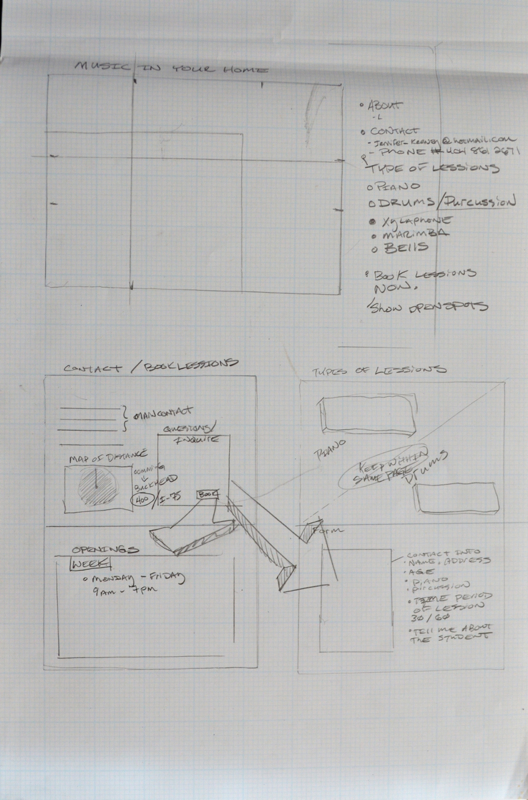 MUSIC IN YOUR HOME
ABOUT
CONTACT
- PHONE # 404
TYPE OF LESSIONS
PIANO
DRUMS/Percussion
XYLAPHONE
MARIMBA
BELLS
BOOK LESSIONS
NOW.
SHOW OPEN SPOTS
CONTACT / BOOK LESSIONS
MAIN CONTACT
QUESTIONS/
INQUIRE
MAP OF DISTANCE
BUCKHEAD
400 / I-75
BOOK
OPENINGS
WEEK
MONDAY - FRIDAY
9AM - 7PM
TYPES OF LESSIONS
PIANO
KEEP WITHIN
SAME PAGE
Drums
Form
CONTACT INFO
NAME, ADDRESS
AGE
PIANO
PERCUSSION
TIME PERIOD
OF LESSION
30/60
TELL ME ABOUT
THE STUDENT